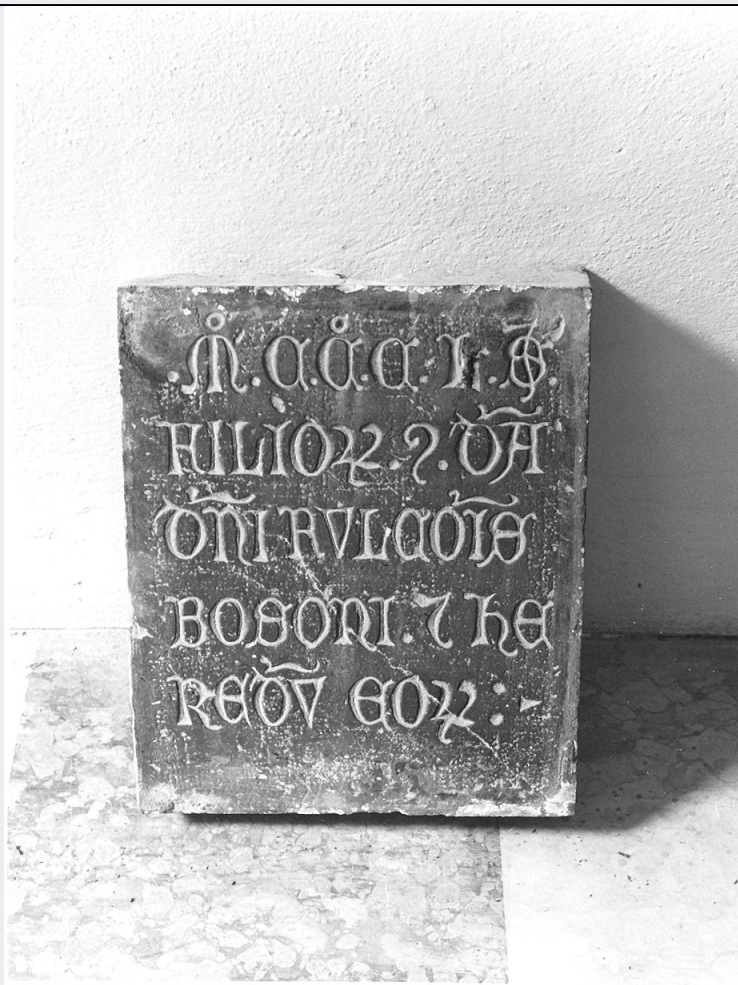 .M̊.C.C̊.C.L.S̄.
FILIOꝝ.Q.DĀ
DÑI FVLCOĪS
BOSONI.⁊ HE
REDV̄ EOꝝ: